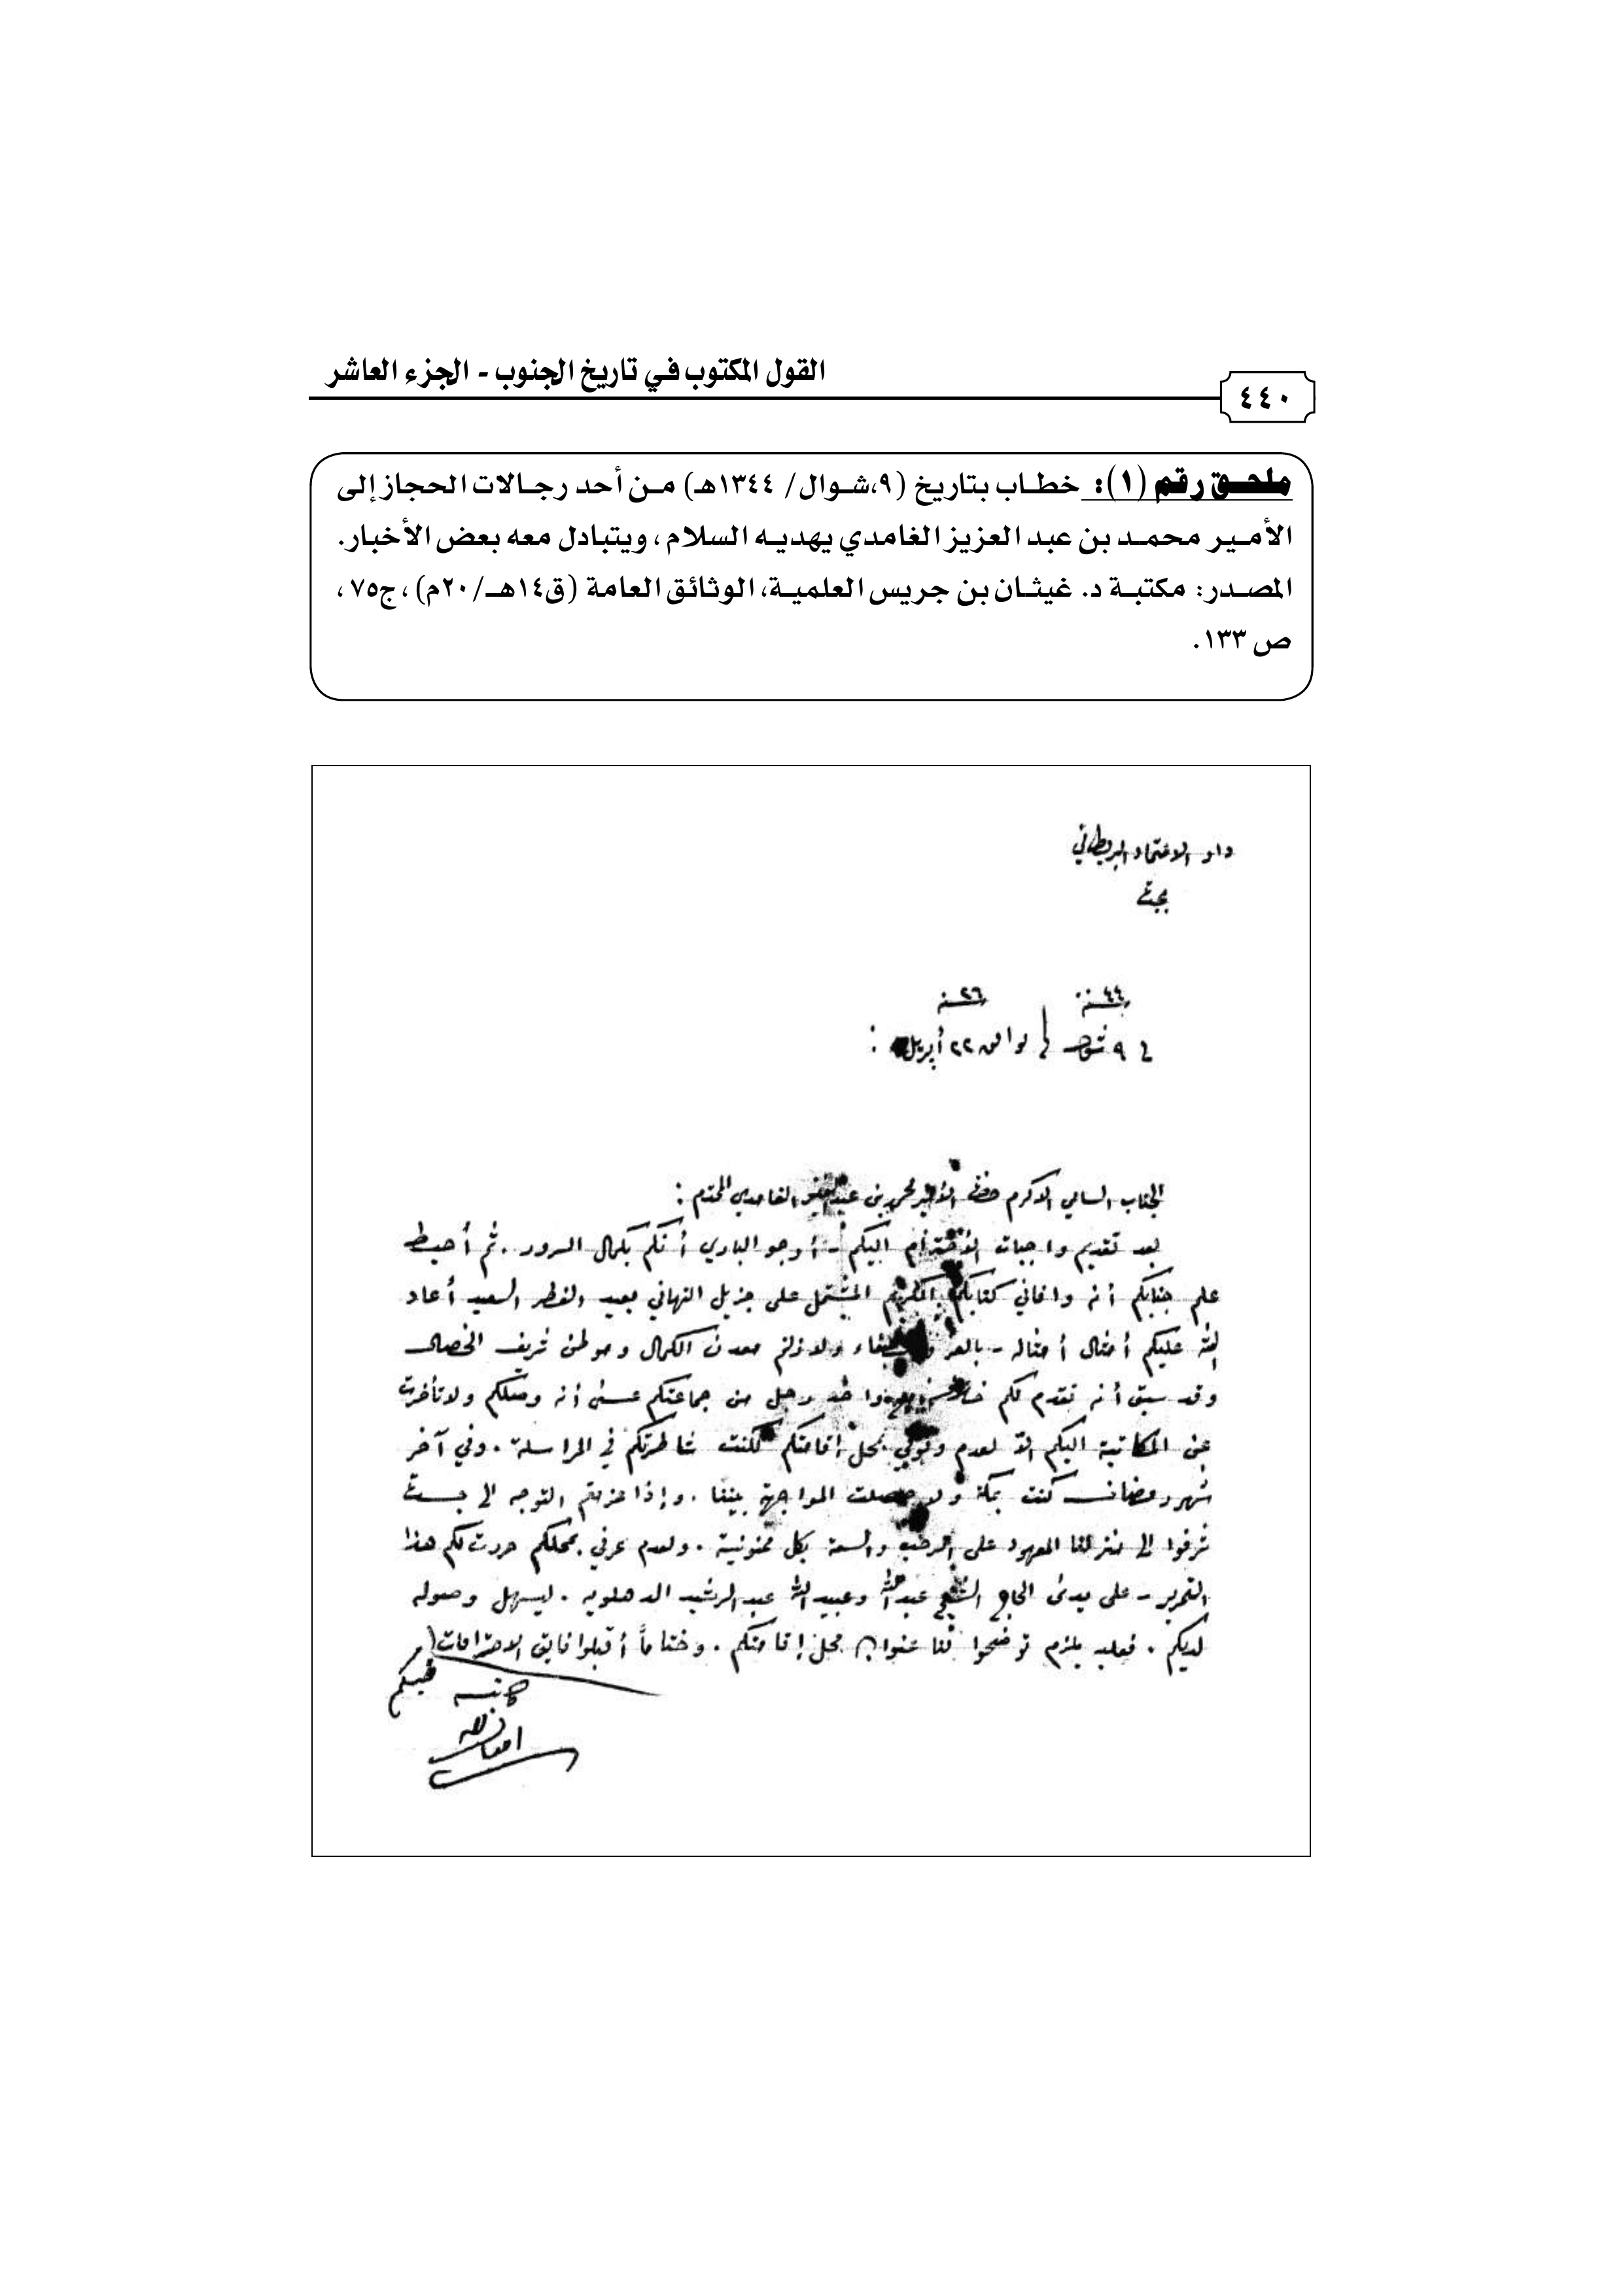 القول المكتوب في تاريخ الجنوب - الجزء العاشر
٤٤٠
ملحق رقم (١): خطاب بتاريخ (٩،شوال/ ١٣٤٤هـ) من أحد رجالات الحجاز إلى
الأمير محمد بن عبد العزيز الغامدي يهديه السلام، ويتبادل معه بعض الأخبار.
المصدر: مكتبة د. غيثان بن جريس العلمية، الوثائق العامة (ق١٤هـ/٢٠م)، ج٧٥،
ص ١٣٣.
دار الاعتماد البريطاني
بجدة
سنة ٤٤ سنة ٢٦
في ٩ شوال / ٢٢ أبريل :
الجناب السامي الاكرم حضرة الأمير محمد بن عبدالعزيز الغامدي المحترم :
بعد تقديم واجبات الاحترام اليكم - أرجو الباري أنكم بكمال السرور . ثم أحيط
علم جنابكم أنه وافاني كتابكم الكريم المشتمل على جزيل التهاني بعيد الفطر السعيد أعاد
الله عليكم أمثال أمثاله - بالعز ولازلتم معدن الكمال وموطن شريف الخصال
وقد سبق أنه تقدم لكم رجل من جماعتكم عسى أنه وصلكم ولا تأخرت
عن المكاتبة اليكم الا لعدم وقوفي بمحل إقامتكم لكنت شاطرتكم في المراسلة . وفي آخر
شهر رمضان كنت بمكة ولا حصلت المواجهة بيننا . وإذا عزمتم التوجه الى جدة
شرفوا الى منزلنا المعهود على الرحب والسعة بكل ممنونية . ولعدم عرفي بمحلكم حررت لكم هذا
التحرير - على يدي الحاج الشيخ عبدالله وعبيدالله عبدالرشيد الدهلويه . ليسهل وصوله
لديكم . فعليه يلزم توضحوا لنا عنوان محل إقامتكم . وختاماً أقبلوا فايق الاحترامات
محبكم